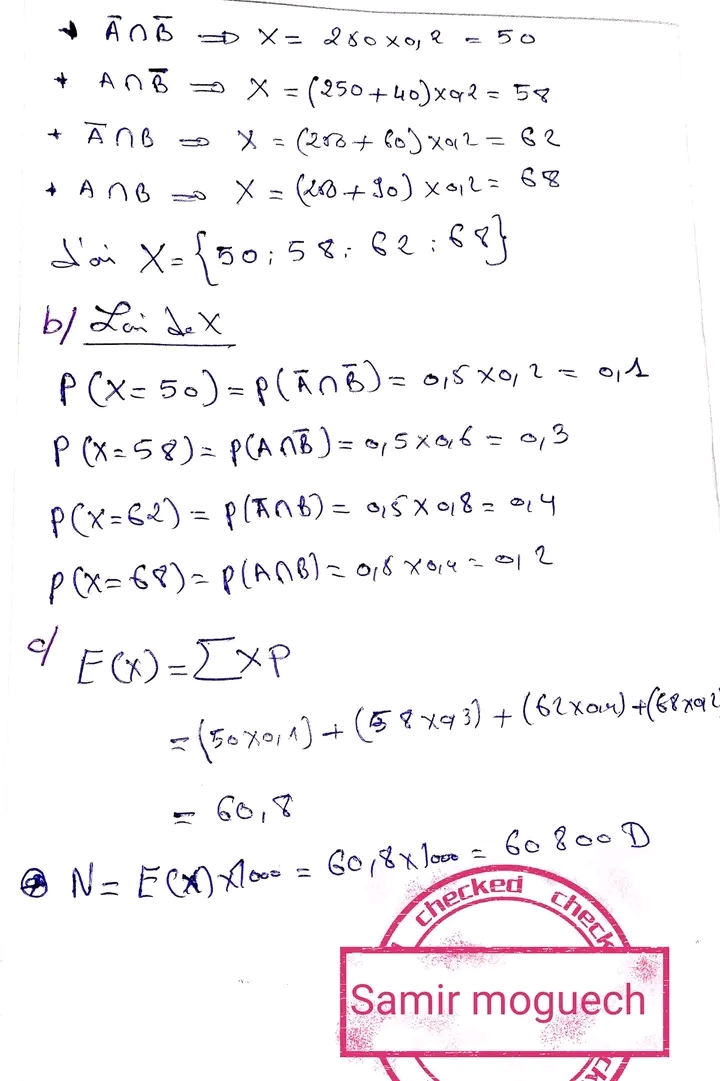 * Ā∩B̄ ⇒ X = 250x0,2 = 50
* A∩B̄ ⇒ X = (250+40)x0,2 = 58
* Ā∩B ⇒ X = (250+60)x0,2 = 62
* A∩B ⇒ X = (250+90)x0,2 = 68
d'où X={50;58;62;68}
b/ Loi de X
P(X=50)=P(Ā∩B̄)= 0,5x0,2 = 0,1
P(X=58)= P(A∩B̄)= 0,5x0,6 = 0,3
P(X=62) = P(Ā∩B)= 0,5x0,8= 0,4
P(X=68)= P(A∩B)= 0,5x0,4= 0,2
c/ E(X)=∑XP
=(50x0,1)+(58x0,3)+(62x0,4)+(68x0,2
= 60,8
N= E(X)x1000 = 60,8x1000 = 60800D
checked check
Samir moguech